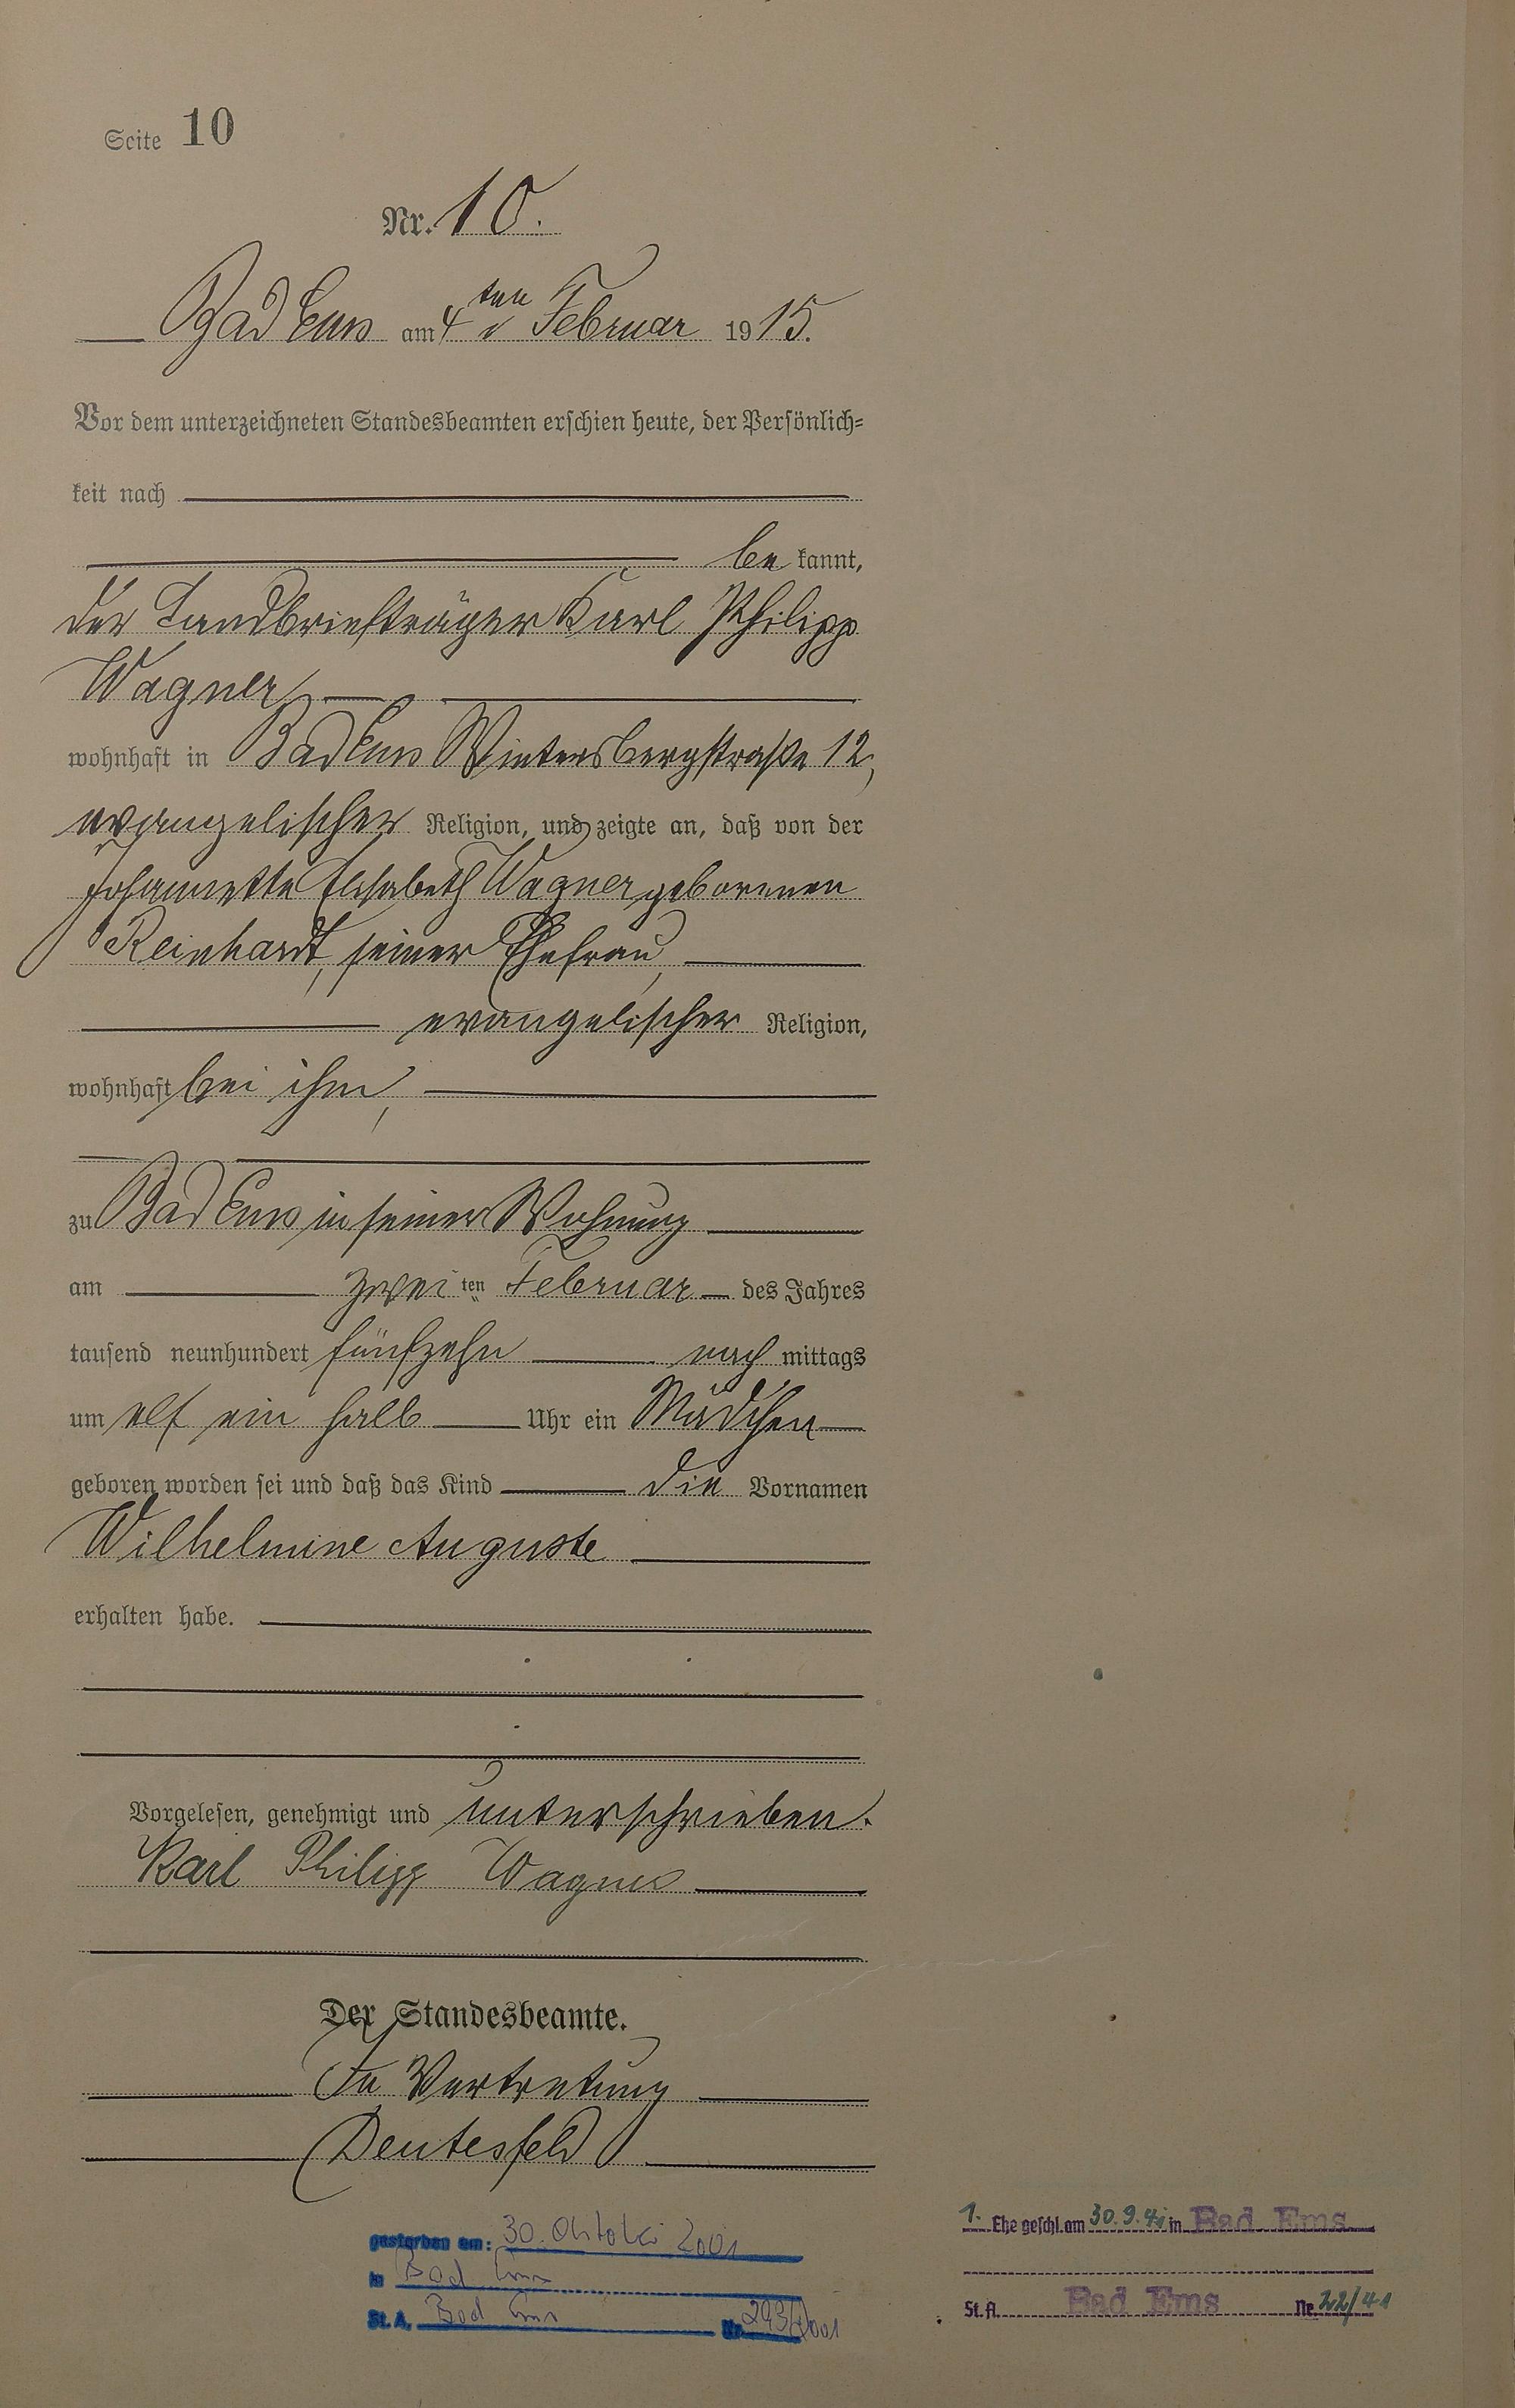 Seite 10
Nr. 10.
Bad Ems am 4ten Februar 1915.
Vor dem unterzeichneten Standesbeamten erschien heute, der Persönlich=
keit nach
be kannt,
der Landbriefträger Karl Philipp
Wagner,
wohnhaft in Bad Ems Wintersbergstraße 12,
evangelischer Religion, und zeigte an, daß von der
Johannette Elisabeth Wagner geborenen
Reinhardt, seiner Ehefrau,
evangelischer Religion,
wohnhaft bei ihm,
zu Bad Ems in seiner Wohnung
am zwei ten Februar des Jahres
tausend neunhundert fünfzehn nach mittags
um elf ein halb Uhr ein Mädchen
geboren worden sei und daß das Kind die Vornamen
Wilhelmine Auguste
erhalten habe.
Vorgelesen, genehmigt und unterschrieben.
Karl Philipp Wagner
Der Standesbeamte.
In Vertretung
Deutesfeld
gestorben am: 30. Oktober 2001
in Bad Ems
St. A. Bad Ems Nr. 293/2001
1. Ehe geschl. am 30.9.41 in Bad Ems
St. A. Bad Ems Nr. 22/41